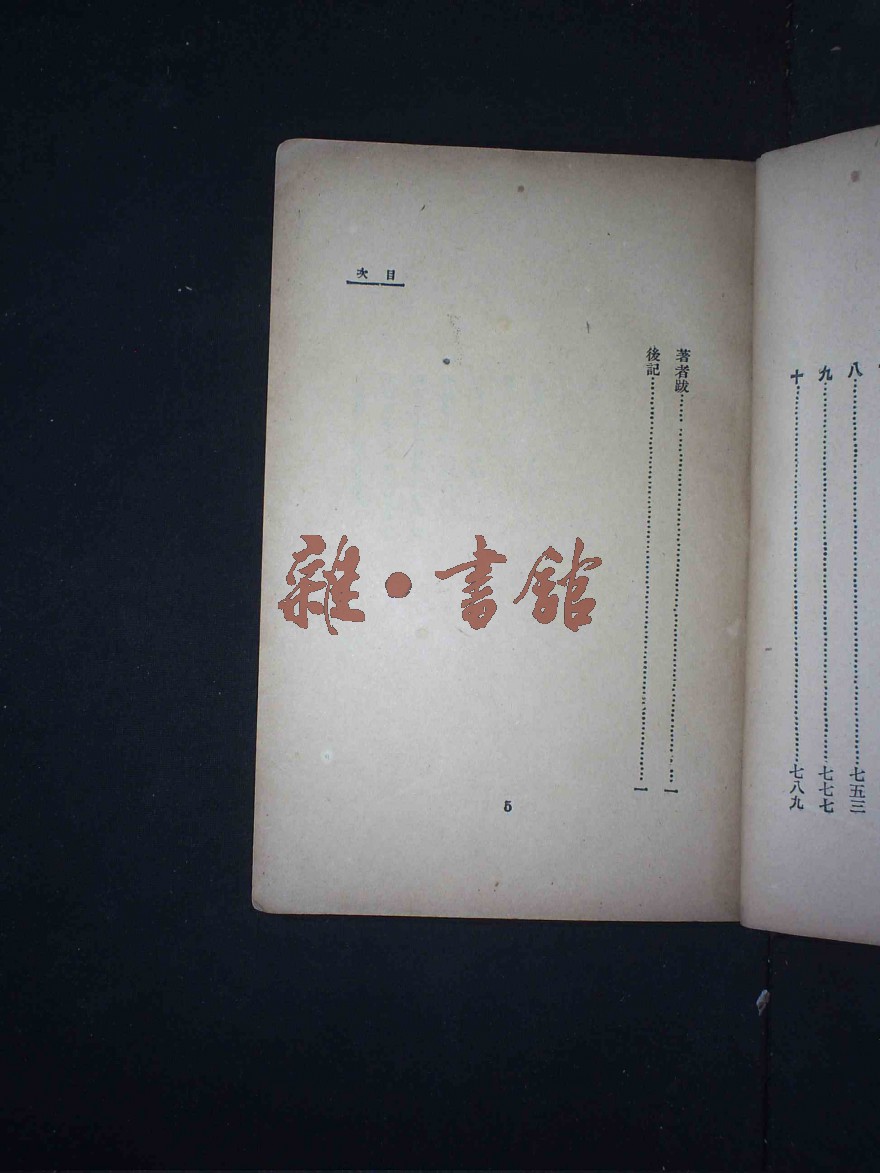 八……七五三
九……七七七
十……七八九
目次
著者跋……一
後記……一
5
雜·書館